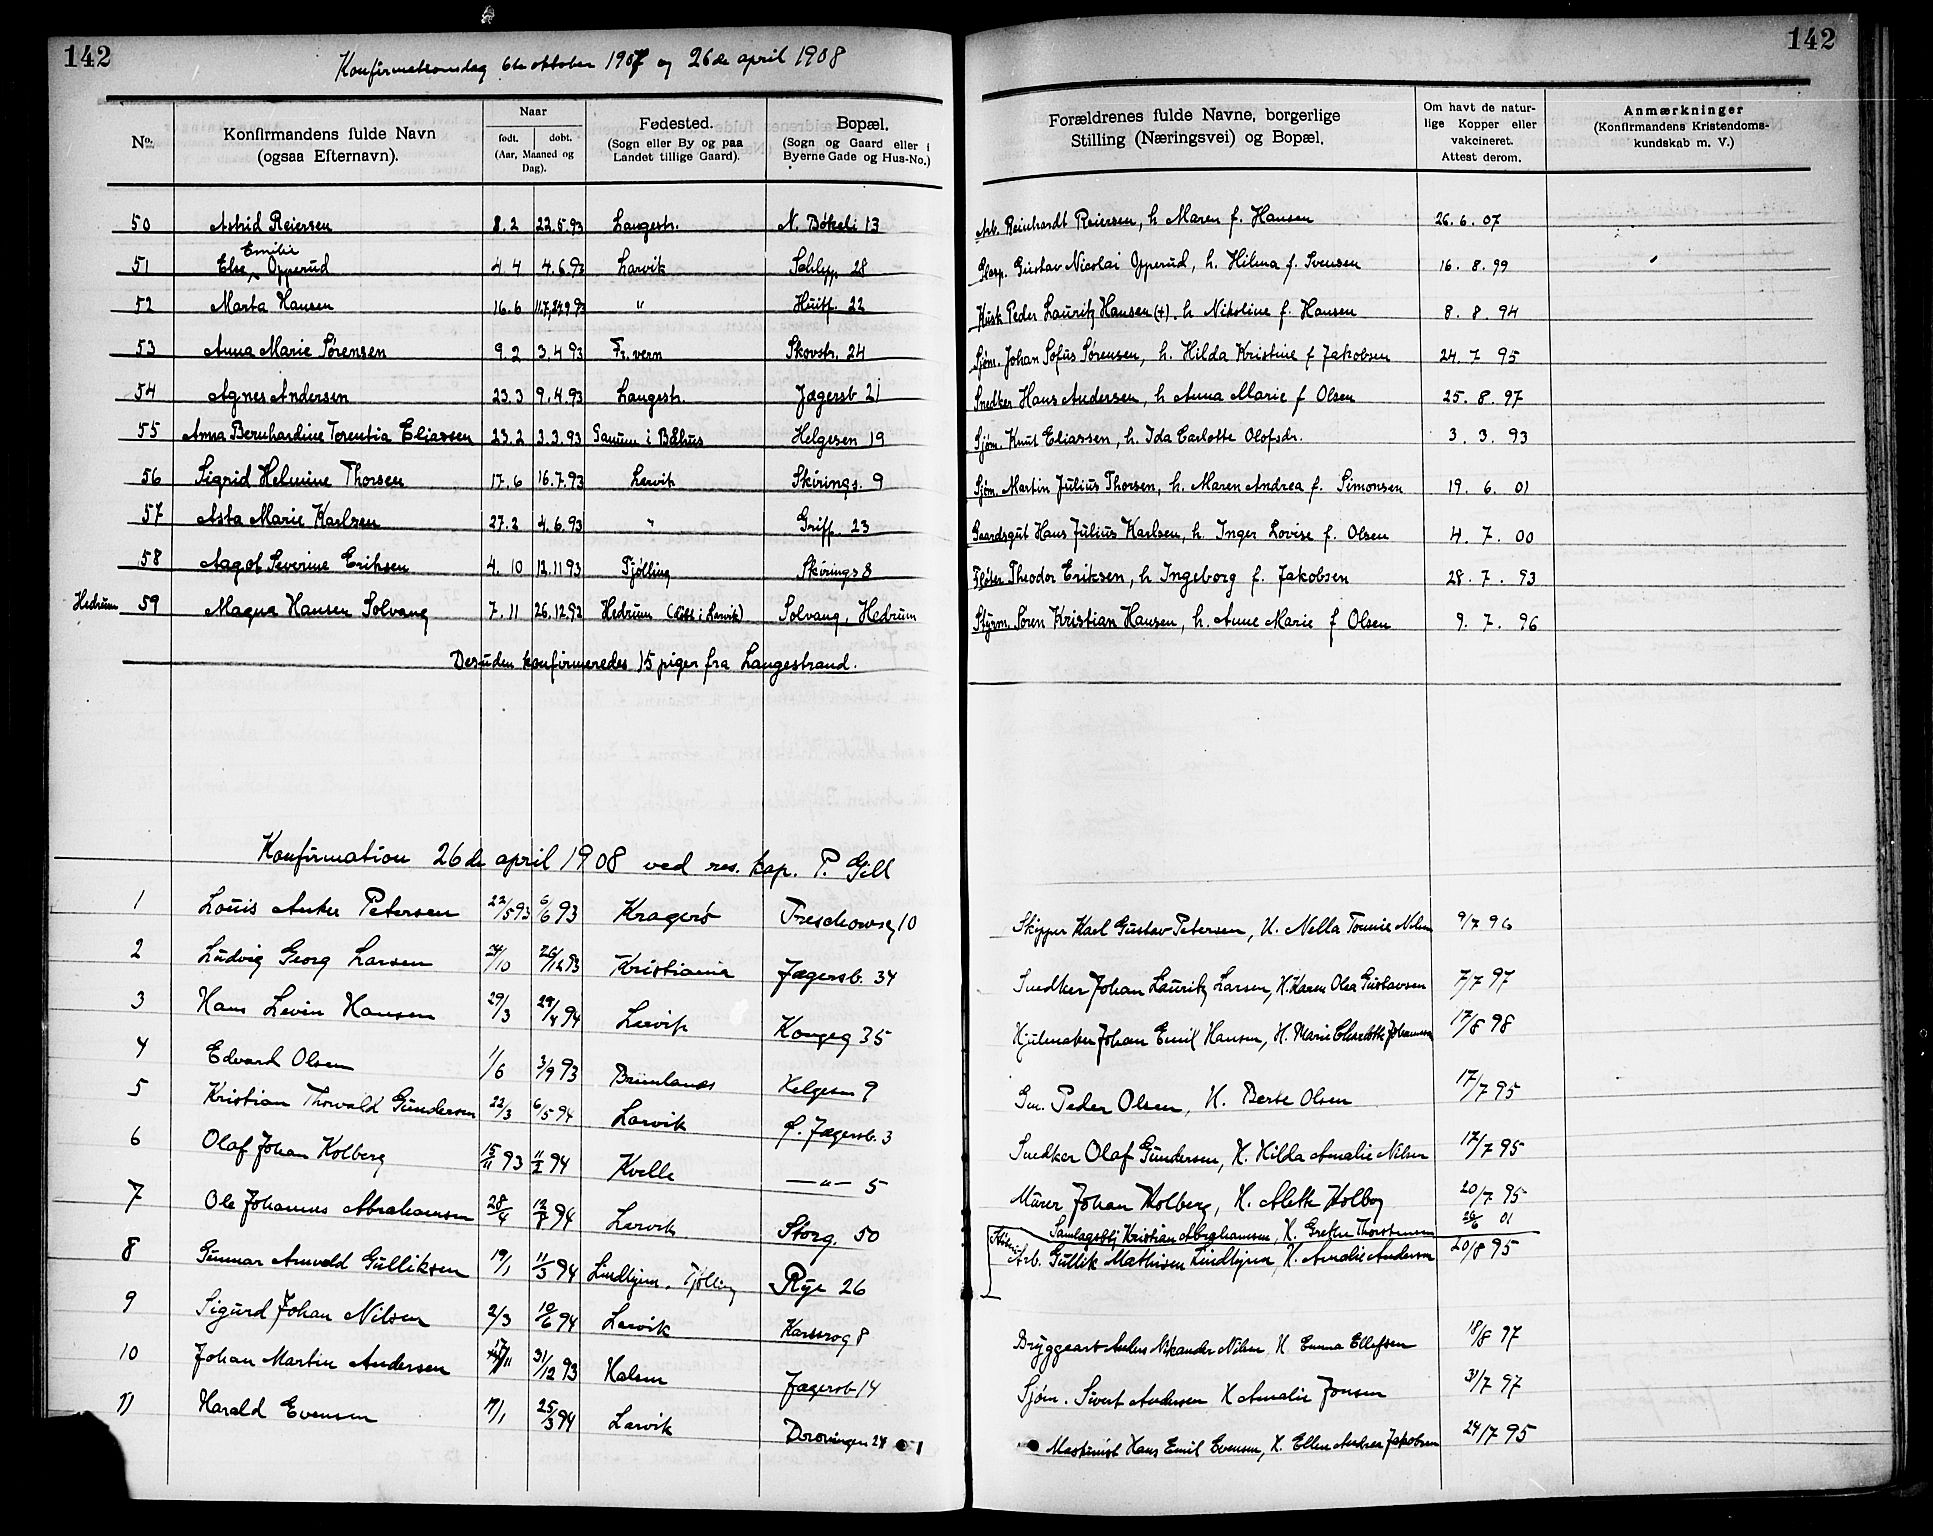 142
142
Konfirmationsdag 6te oktober 1907 og 26de april 1908
No.
Konfirmandens fulde Navn (ogsaa Efternavn).
Naar
født. døbt.
(Aar, Maaned og Dag).
Fødested.
(Sogn eller By og paa Landet tillige Gaard).
Bopæl.
(Sogn og Gaard eller i Byerne Gade og Hus-No.)
Forældrenes fulde Navne, borgerlige Stilling (Næringsvei) og Bopæl.
Om havt de naturlige Kopper eller vakcineret. Attest derom.
Anmærkninger
(Konfirmandens Kristendomskundskab m. V.)
50 Astrid Reiersen 8.2 22.5.93 Langestr. N. Bøkeli 13 Arb. Reinhardt Reiersen, h. Maren f. Hansen 26.6.07
51 Else Emilie Opperud 4.4 4.6.93 Larvik Schlyp. 28 Glasp. Gustav Nicolai Opperud, h. Hilma f. Svensen 16.8.99
52 Marta Hansen 16.6 " Huitf. 22 Kusk Peder Lauritz Hansen (+). h Nikoline f. Hansen 8.8.94
53 Anna Marie Sørensen 9.2 3.4.93 Fr.vern Skovstr. 24 Sjøm. Johan Sofus Sørensen, h. Hilda Kristine f Jakobsen 24.7 95
54 Agnes Andersen 23.3 9.4.93 Langestr. Jegersb 21 Snedker Hans Andersen, h Anna Marie f Olsen 25.8.97
55 Anna Bernhardine Terentia Eliassen 23.2 3.3.93 Tanum i Båhus Helgesen 19 Sjøm. Knut Eliassen, h. Ida Carlotte Olofsdr. 3.3.93
56 Sigrid Helmine Thorsen 17.6 16.7.93 Larvik Skirings. 9 Sjøm. Martin Julius Thorsen, h. Maren Andrea f. Simonsen 19.6.01
57 Asta Marie Karlsen 27.2 4.6.93 " Griff. 23 Gaardsgut Hans Julius Karlsen, h. Inger Lovise f. Olsen 4.7.00
58 Aagot Severine Eriksen 4.10 12.11 93 Tjølling Skirings 8 Fløter Theodor Eriksen, h Ingeborg f. Jakobsen 28.7.93
Hedrum 59 Magna Hansen Solvang 7.11 26.12.93 Hedrum (døbt i Larvik) Solvang, Hedrum Styrm. Søren Kristian Hansen, h. Anne Marie f Olsen 9.7.96
Desuden konfirmeredes 15 piger fra Langestrand.
Konfirmation 26de april 1908 ved res. kap. P. Gill
1 Louis Anker Petersen 22/5 93 6/6 93 Kragerø Treschowsg 10 Skipper Karl Gustav Petersen, H. Nella Tomine Nilsen 9/7 96
2 Ludvig Georg Larsen /10 26/12 93 Kristiania Jægersb. 34 Snedker Johan Lauritz Larsen, H. Karen Olea Gustavsen 7/7 97
3 Hans Levin Hansen 29/3 29/4 94 Larvik Kongeg 35 Hjulmaker Johan Emil Hansen, H. Marie Charlotte Johannesen 17/8 98
4 Edvard Olsen 1/6 3/9 93 Brunlanes Helgesen 9 Gm. Peder Olsen, H. Berte Olsen 17/7 95
5 Kristian Thorvald Gundersen 22/3 6/5 94 Larvik f. Jægersb. 3 Snedker Olaf Gundersen, H. Hilda Amalie Nilsen 17/7 95
6 Olaf Johan Kolberg 15/11 93 11/2 94 Kvelle —"— 5 Murer Johan Kolberg, H. Alette Kolberg 20/7 95
7 Ole Johannes Abrahamsen 28/4 12/8 94 Larvik Storg. 50 Samlagsbstj Kristian Abrahamsen, H. Grethe Thorstensen 26/6 01
8 Gunnar Arnvald Gulliksen 19/1 11/3 94 Lindhjem, Tjølling Rye 26 Arb. Gullik Mathisen Lindhjem, H. Amalie Andersen 20/8 95
9 Sigurd Johan Nilsen 2/3 10/6 94 Larvik Karlsrog 8 Bryggearb Anders Nikander Nilsen, H. Emma Ellefsen 18/8 97
10 Johan Martin Andersen 17/11 31/12 93 Halsen Jægersb 14 Sjøm. Sivert Andersen H Amalie Jonsen 31/7 97
11 Harald Evensen 17/1 25/3 94 Larvik Dronningen 24 Maskinist Hans Emil Evensen, H. Ellen Andrea Jakobsen 24/7 95